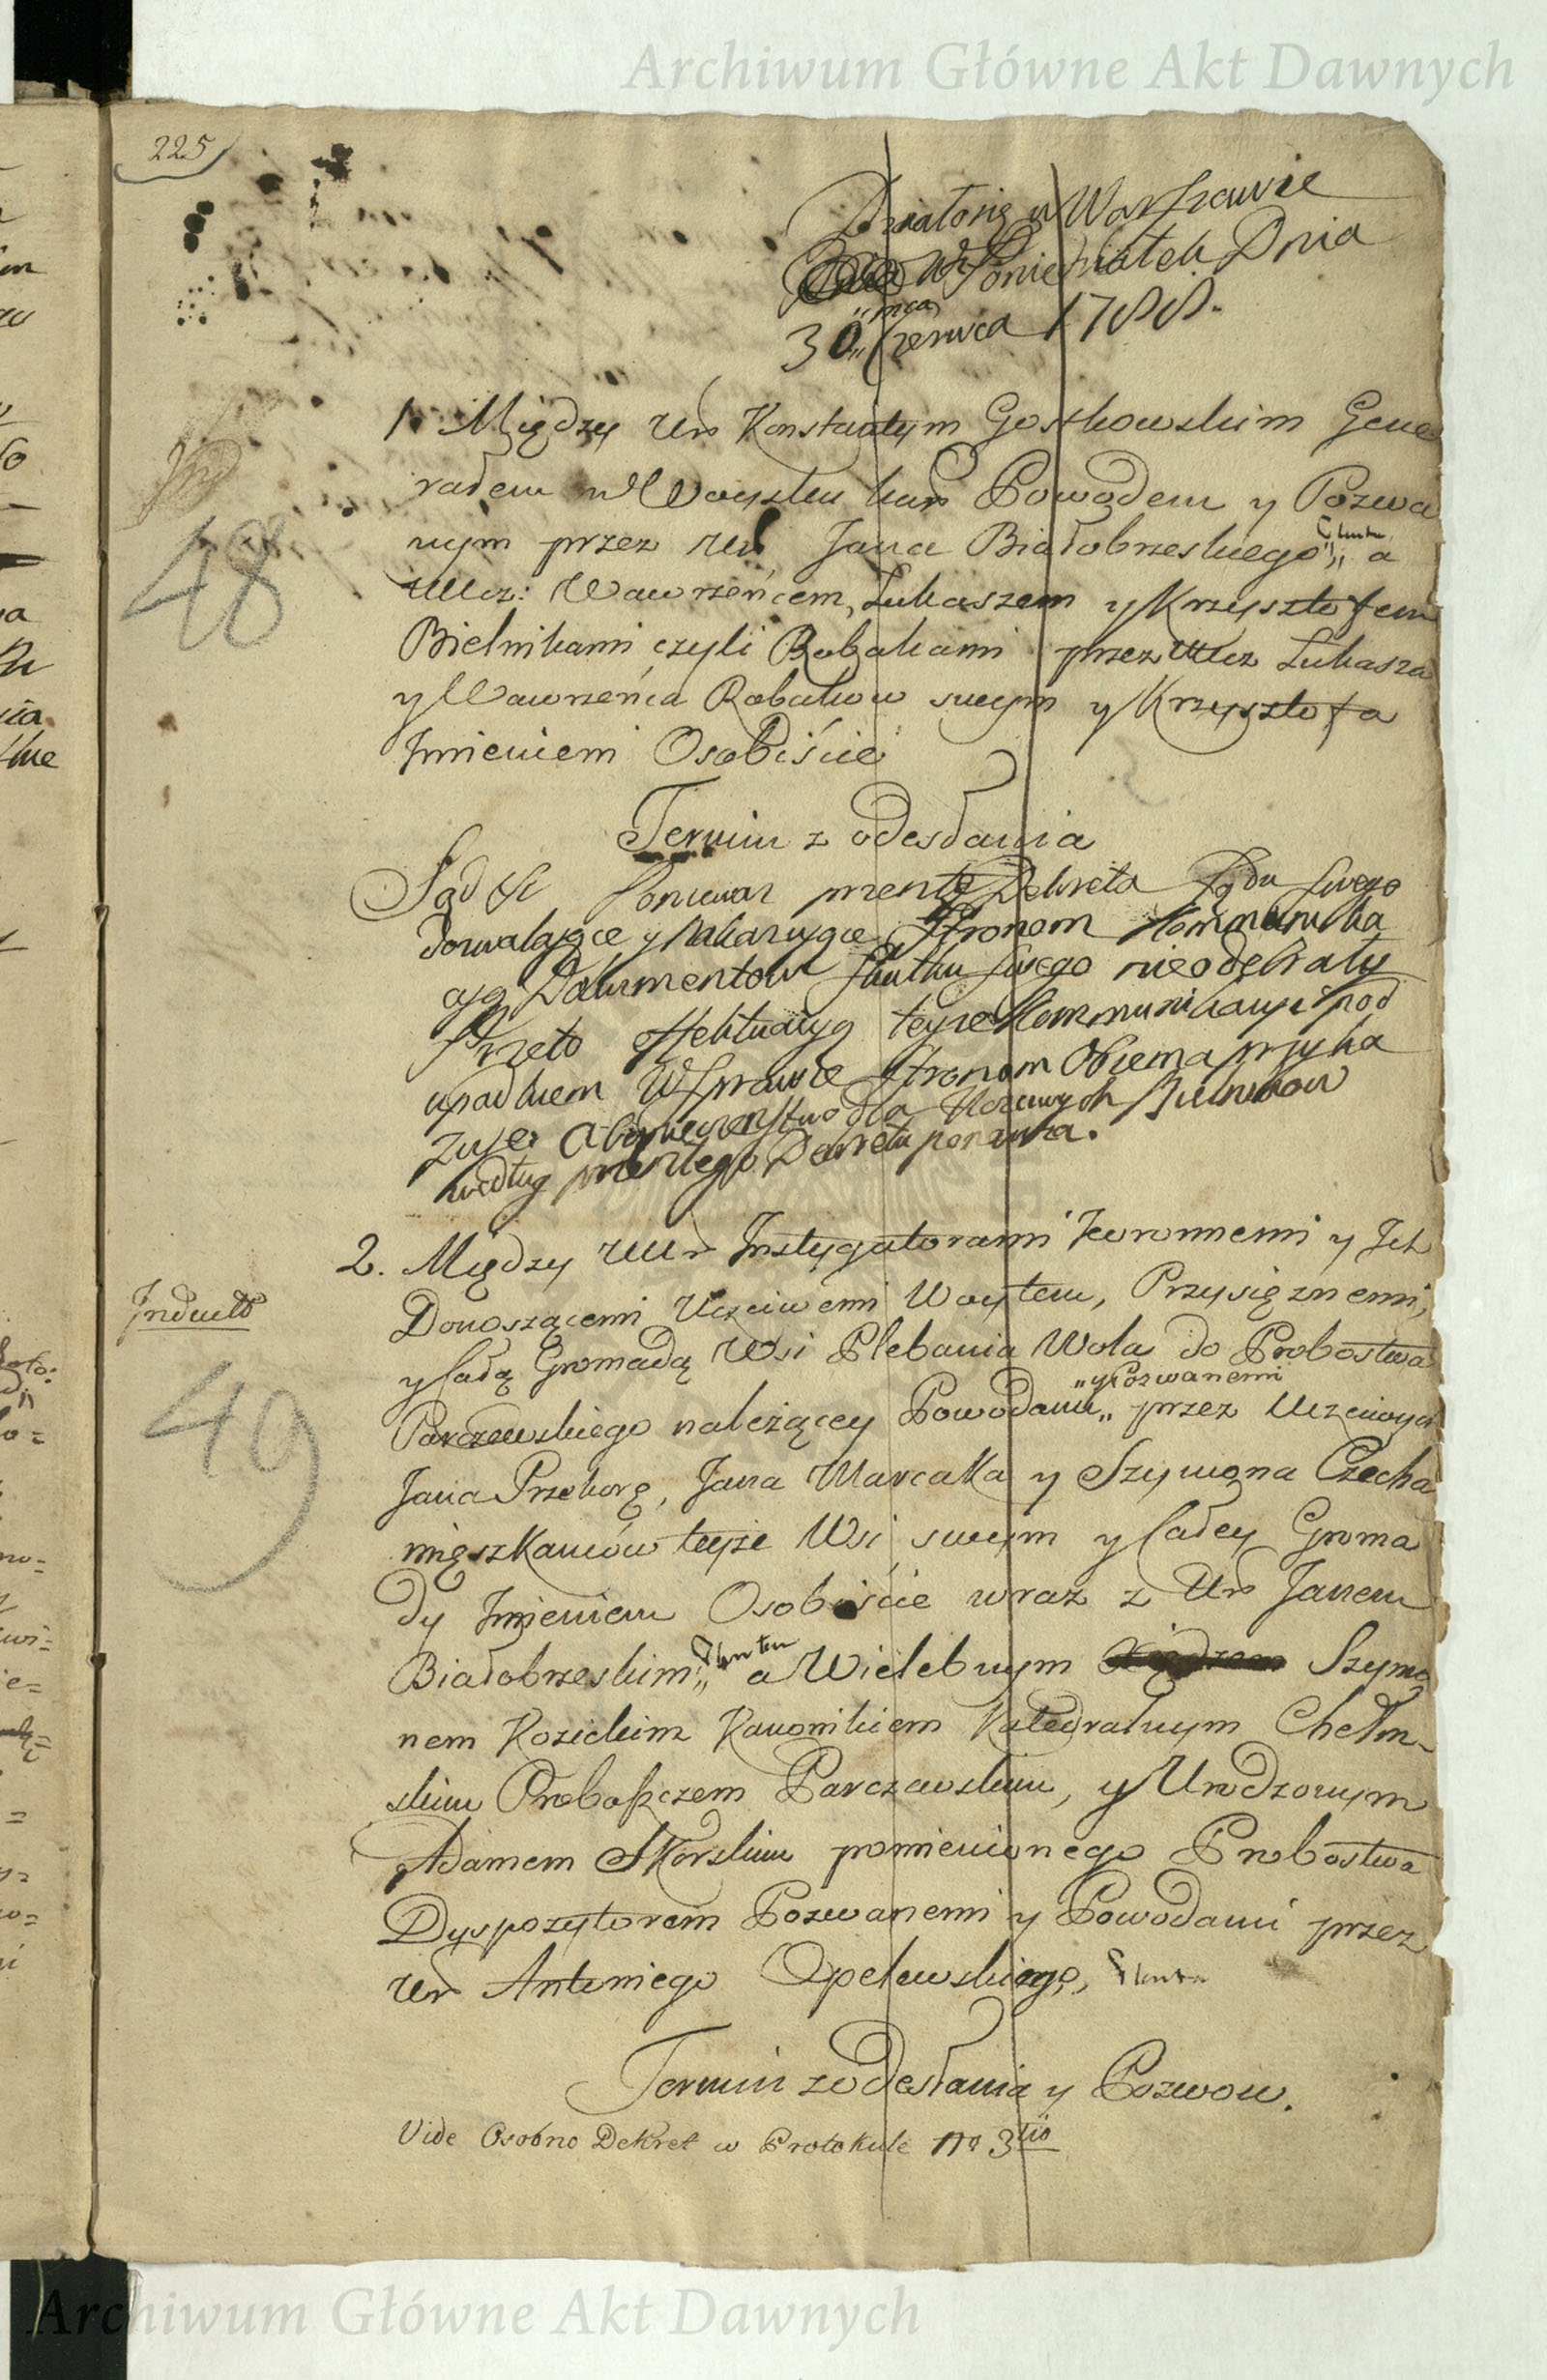 Archiwum Główne Akt Dawnych
225
Działosię w Warszawie
w Poniedziałek Dnia
"mca"
30 „ Czerwca 1788.
1. Między Ur Konstantym Gostkowskim Gene
48
rałem w Woysku kor Powodem y Pozwa
nym przez Ur Jana Białobrzeskiego „ a
Ucz: Wawrzeńcem, Łukaszem y Krzysztofem
Bielnikami czyli Robakami przez Ucz Łukasza
y Wawrzeńca Robakow swym y Krzysztofa
Jmieniem Osobiście
Termin z odesłania
Sąd Ponieważ Dekreta Sądu swego
dozwalaiące y nakazuiące Stronom Kommunika
cyą Dokumentow skutku swego nieodebrały
Przeto effektuacyą teyże Kommunikacyi pod
upadkiem w sprawie Stronom Obiema przyka
zuie: a bespieczenstwo dla Uczciwych Bielnikow
według Dekretu ponawia.
2. Między Ur Instygatorami Koronnemi y Ich
Indukto
Donoszącemi Uczciwemi Woytem, Przysiężnemi,
y całą Gromadą Wsi Plebania Wola do Probostwa
"y Pozwanemi
Parczewskiego należącey Powodami „ przez Uczciwych
49
Jana Przekorę, Jana Marcaka y Szymona Czecha
mięszkańców teyże Wsi swym y całey Groma
dy Jmieniem Osobiście wraz z Ur Janem
Białobrzeskim „ a Wielebnym Szymo
nem Kozickim Kanonikiem Katedralnym Chełm-
skim Proboszczem Parczewskim, y Urodzonym
Adamem Skorskim pomienionego Probostwa
Dyspozytorem Pozwanemi y Powodami przez
Ur Antoniego Opelewskiego,
Termin z odesłania y Pozwow.
Vide Osobno Dekret w Protokule No 3tio
Archiwum Główne Akt Dawnych